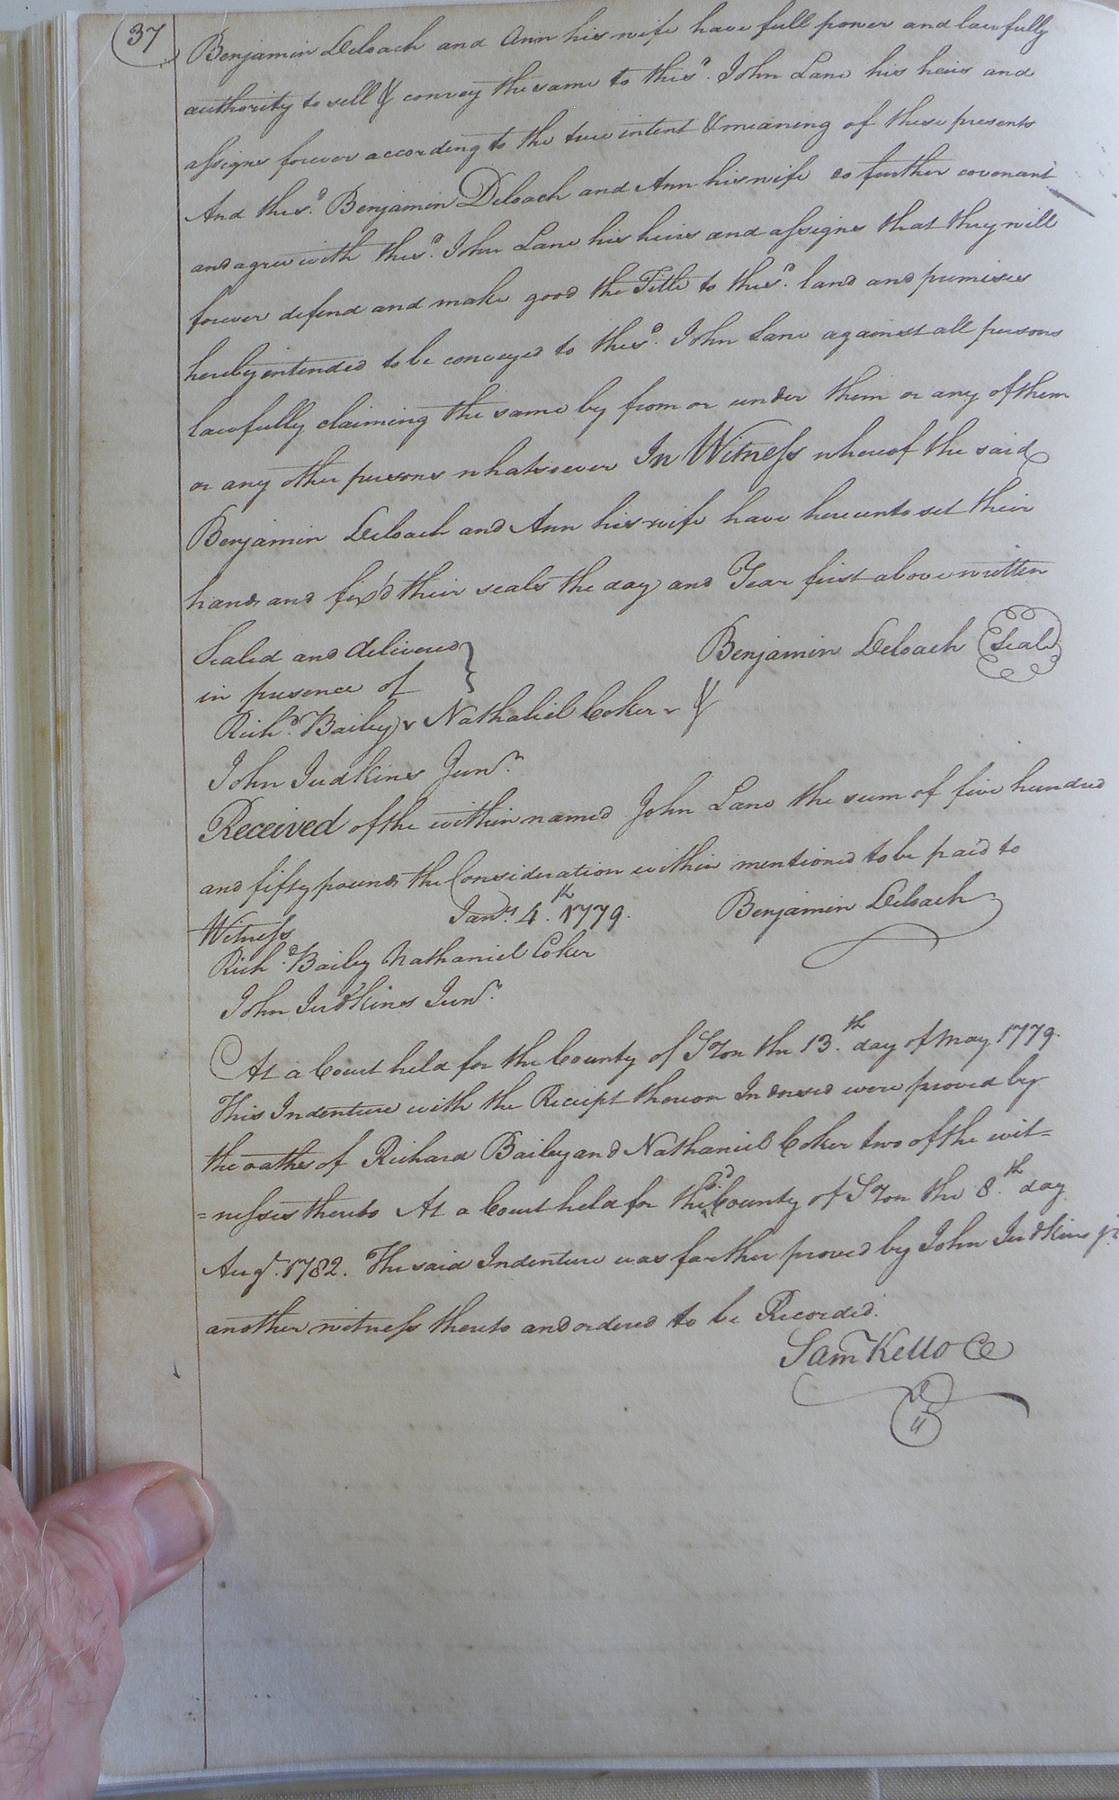 37
Benjamin Deloach and Ann his wife have full power and lawfully
authority to sell & convey the same to the sd. John Lane his heirs and
assigns forever according to the true intent & meaning of these presents
And the sd. Benjamin Deloach and Ann his wife do further covenant
and agree with the sd. John Lane his heirs and assigns that they will
forever defend and make good the Title to the sd. land and premises
hereby intended to be conveyed to the sd. John Lane against all persons
lawfully claiming the same by from or under them or any of them
or any other persons whatsoever In Witness whereof the said
Benjamin Deloach and Ann his wife have hereunto set their
hands and fix'd their seals the day and Year first above written
Sealed and delivered } Benjamin Deloach (Seal)
in presence of
Richd. Bailey, Nathaniel Coker, &
John Judkins Junr.
Received of the within named John Lane the sum of five hundred
and fifty pounds the Consideration within mentioned to be paid to
Witness Jany. 4th. 1779. Benjamin Deloach
Richd. Bailey Nathaniel Coker
John Judkins Junr.
At a Court held for the County of Ston the 13th. day of May 1779.
This Indenture with the Receipt thereon Indorsed were proved by
the oaths of Richard Bailey and Nathaniel Coker two of the wit=
=nesses thereto At a Court held for the sd. County of Ston the 8th. day
Augt. 1782. The said Indenture was farther proved by John Judkins jr.
another witness thereto and ordered to be Recorded.
Sam Kello CC